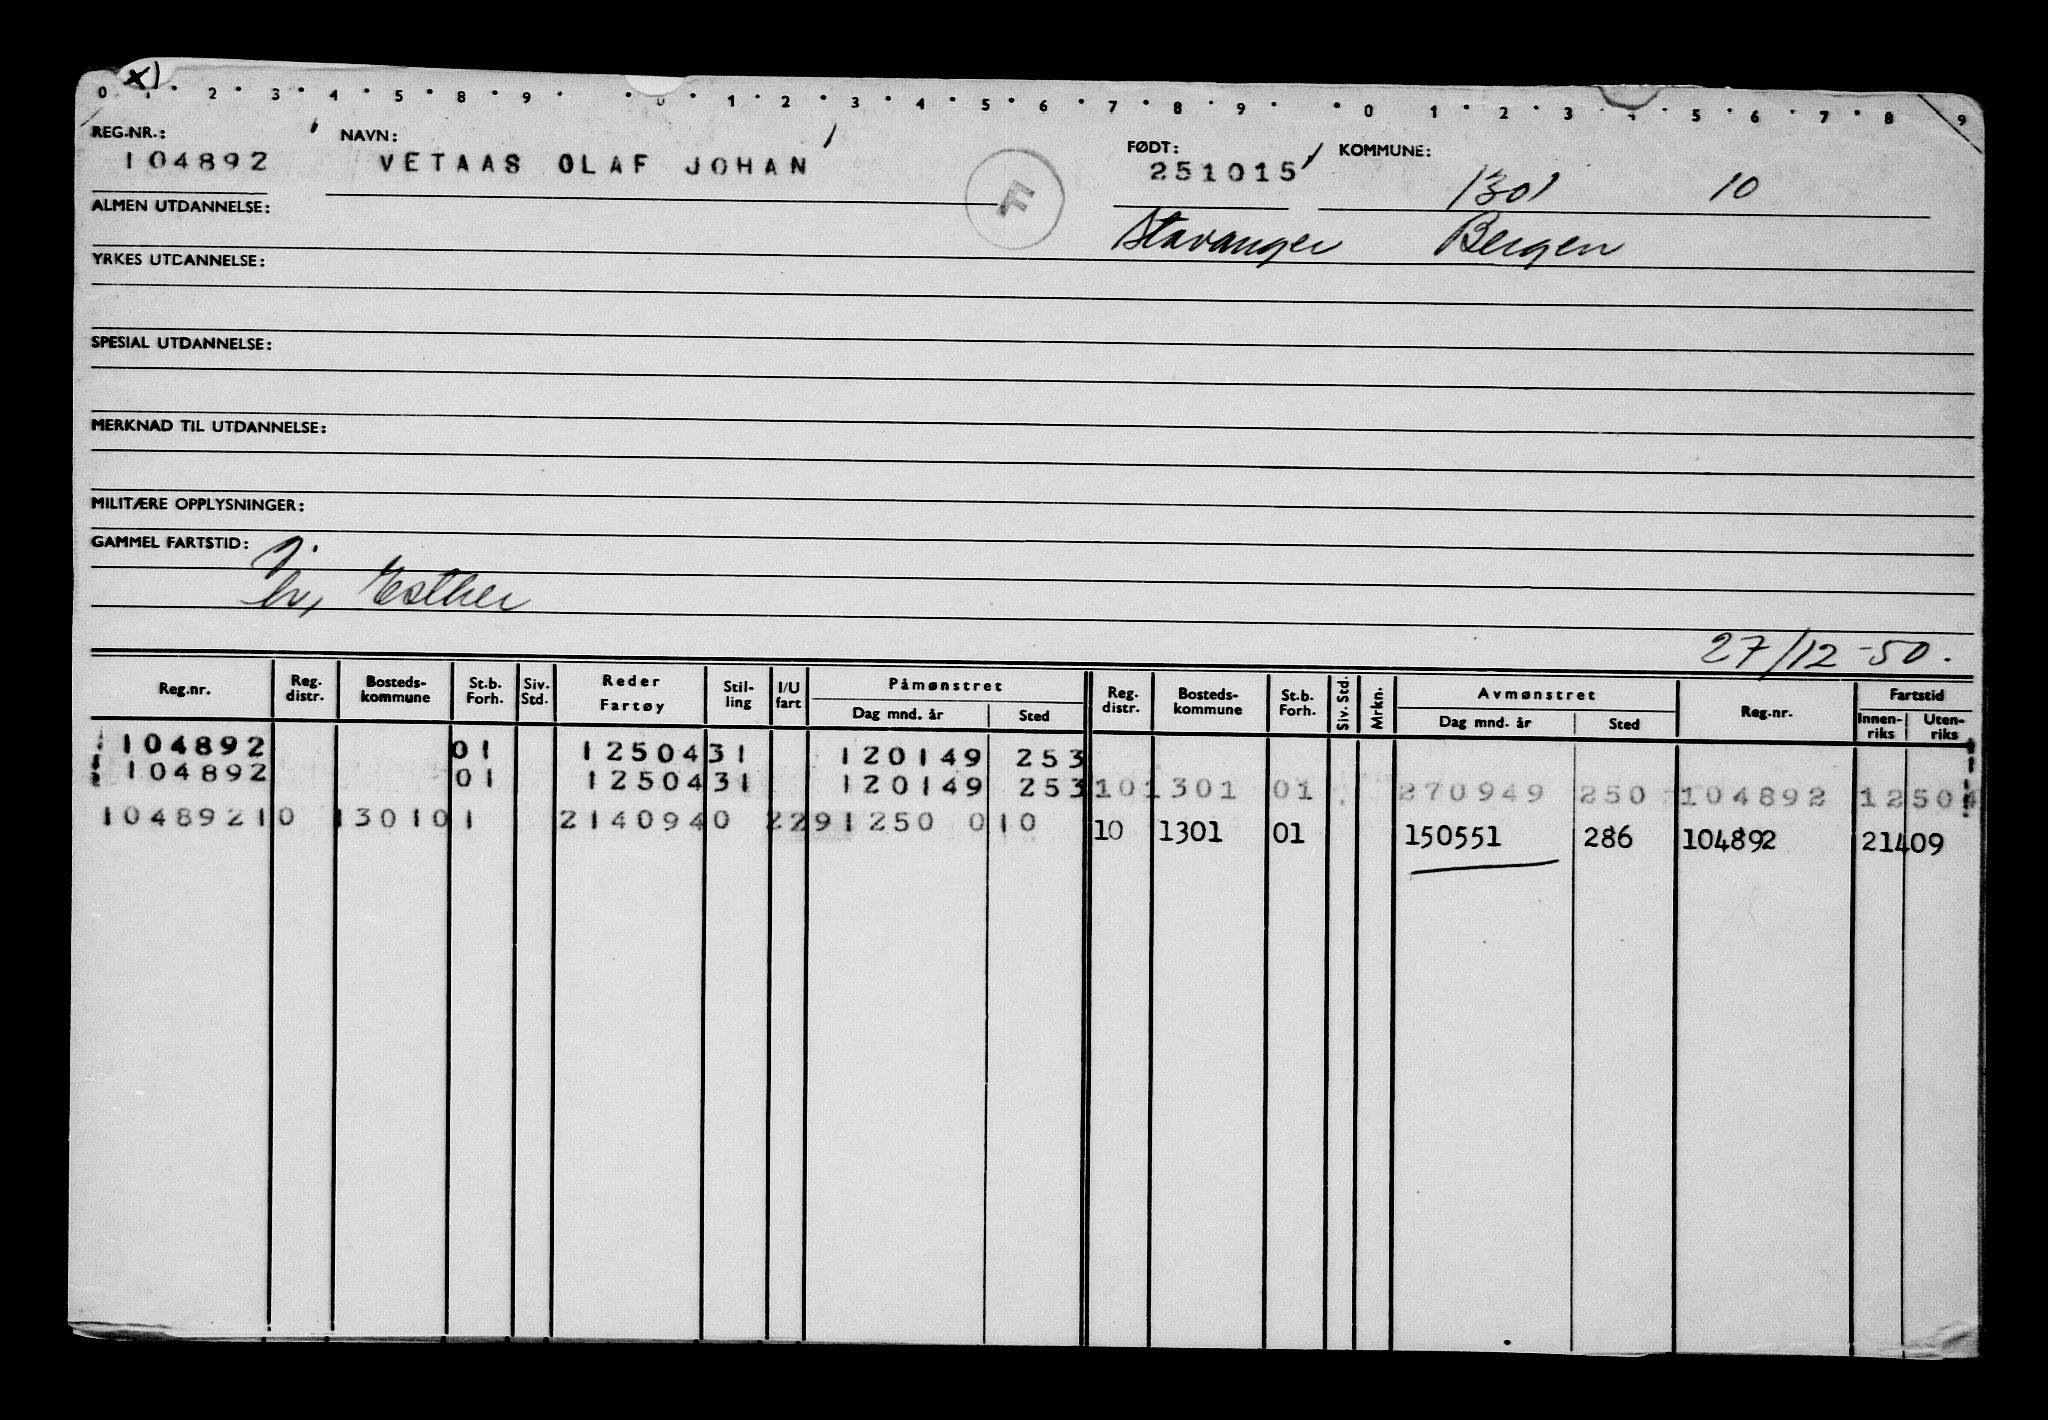 x)
0 1 2 3 4 5 8 9 0 1 2 3 4 5 6 7 8 9 0 1 2 3 4 5 6 7 8 9
REG.NR.: NAVN: FØDT: KOMMUNE:
104892 VETAAS OLAF JOHAN 251015 1301 10
F
ALMEN UTDANNELSE: Stavanger Bergen
YRKES UTDANNELSE:
SPESIAL UTDANNELSE:
MERKNAD TIL UTDANNELSE:
MILITÆRE OPPLYSNINGER:
GAMMEL FARTSTID:
Esther
27/12-50.
Reg.nr. Reg. distr. Bosteds-kommune St.b. Forh. Siv. Std. Reder Fartøy Stil-ling I/U fart Påmønstret Dag mnd. år Sted Reg. distr. Bosteds-kommune St.b. Forh. Siv. Std. Mrkn. Avmønstret Dag mnd. år Sted Reg.nr. Fartstid Innen-riks Uten-riks
104892 01 1250431 120149 253
104892 01 1250431 120149 253 101301 01 270949 250 104892 12504
10489210 130101 2140940 2291250 010
10 1301 01 150551 286 104892 21409